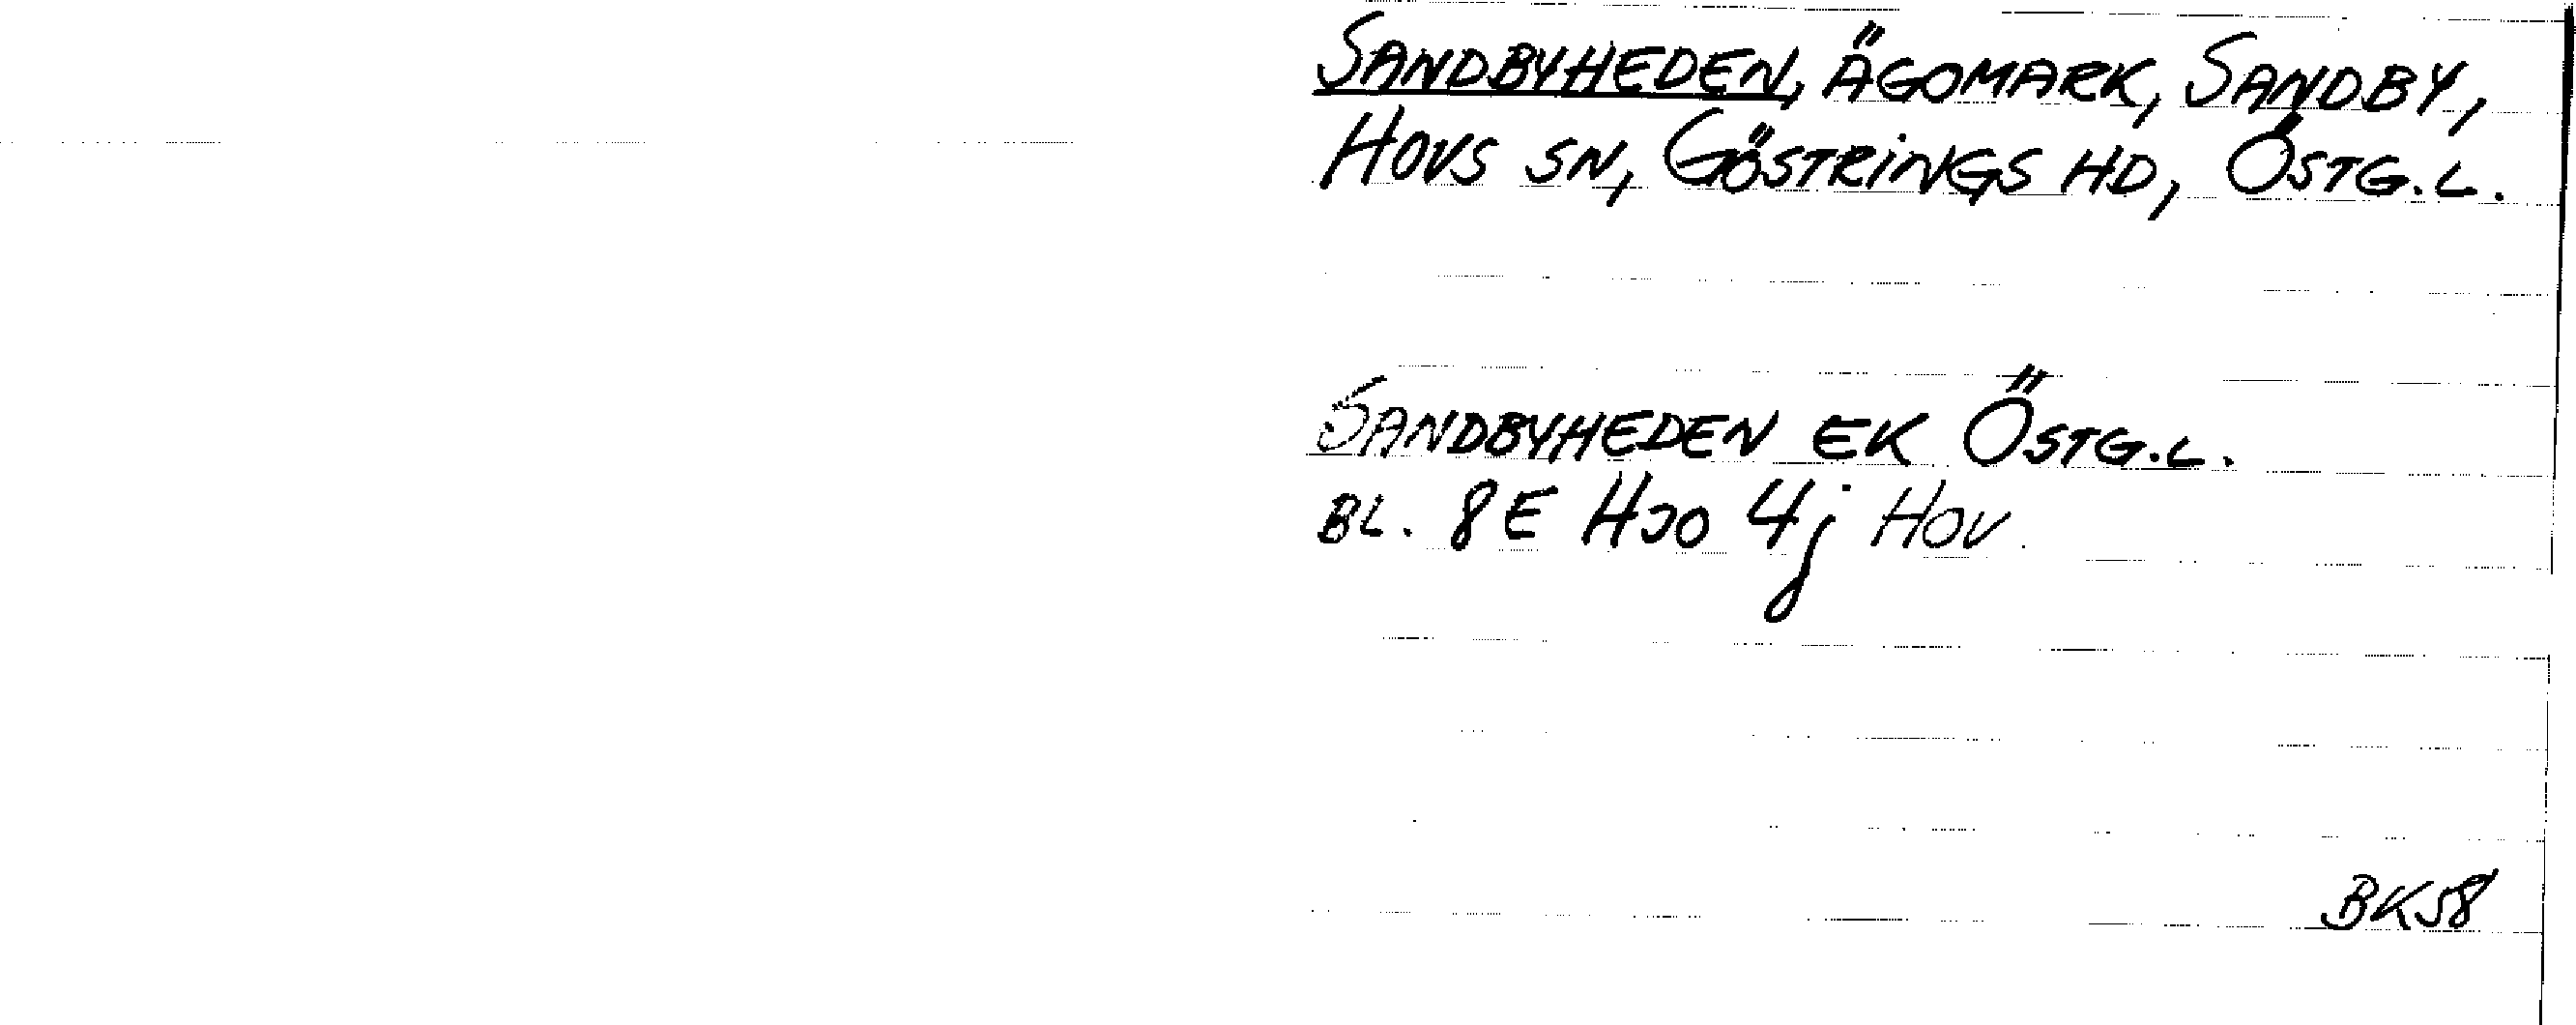 SANDBYHEDEN, ÄGOMARK, SANDBY,
HOVS SN, GÖSTRINGS HD, ÖSTG.L.
SANDBYHEDEN EK ÖSTG.L.
BL. 8E HJO 4j HOV.
BK58